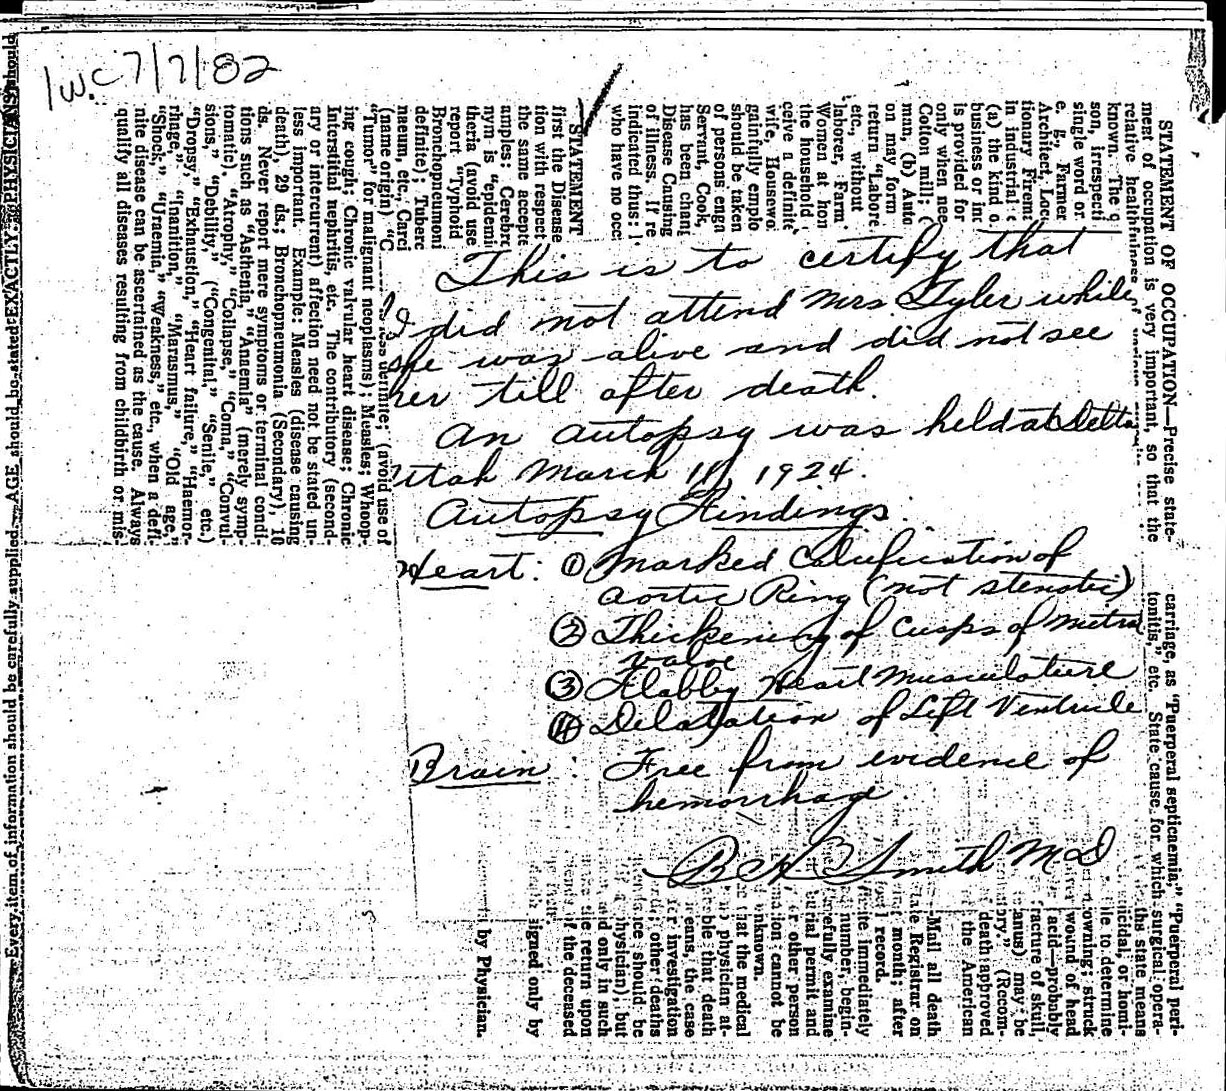 1w.c 7/7/82
This is to certify that
I did not attend Mrs. Tyler while
she was alive and did not see
her till after death.
An autopsy was held at Delta
Utah March 11, 1924.
Autopsy Findings.
Heart: ① Marked Calcification of
Aortic Ring (not stenotic)
② Thickening of Cusps of Mitral
valve
③ Flabby Heart Musculature
④ Delatation of Left Ventricle
Brain: Free from evidence of
hemorrhage.
Smith M D
STATEMENT OF OCCUPATION—Precise state-
ment of occupation is very important, so that the
relative healthfulness of various
known. The q
son, irrespecti
single word or
e. g., Farmer
Architect, Loco
tionary Firema
in industrial
(a) the kind o
business or ind
is provided for
only when nee
Cotton mill; (
man, (b) Auto
on may form
return "Labore
etc., without
laborer, Farm
Women at hom
the household
ceive a definite
wife, Housewo
gainfully emplo
should be taken
of persons enga
Servant, Cook,
has been chang
Disease Causing
of illness. If re
indicated thus:
who have no occ
STATEMENT
first the Disease
tion with respect
the same accepte
amples: Cerebro
nym is "epidemi
theria (avoid use
report "Typhoid
Bronchopneumoni
definite); Tuberc
naeum, etc., Carci
(name origin) "C
less definite; (avoid use of
"Tumor" for malignant neoplasms); Measles; Whoop-
ing cough; Chronic valvular heart disease; Chronic
Interstitial nephritis, etc. The contributory (second-
ary or intercurrent) affection need not be stated un-
less important. Example: Measles (disease causing
death), 29 ds.; Bronchopneumonia (Secondary), 10
ds. Never report mere symptoms or terminal condi-
tions such as "Asthenia," "Anaemia" (merely symp-
tomatic), "Atrophy," "Collapse," "Coma," "Convul-
sions," "Debility," ("Congenital," "Senile," etc.)
"Dropsy," "Exhaustion," "Heart failure," "Haemor-
rhage," "Inanition," "Marasmus," "Old age,"
"Shock," "Uraemia," "Weakness," etc., when a defi-
nite disease can be ascertained as the cause. Always
qualify all diseases resulting from childbirth or mis-
carriage, as "Puerperal septicaemia," "Puerperal peri-
tonitis," etc. State cause for which surgical opera-
this state means
icidal, or homi-
le to determine
owning; struck
wound of head
acid—probably
racture of skull,
anus) may be
ory." (Recom-
death approved
the American
Mail all death
ate Registrar on
month; after
record.
ite immediately
number, begin-
refully examine
urial permit and
or other person
ation cannot be
nknown.
that the medical
physician at-
ble that death
eans, the case
or investigation
other deaths
ce should be
physician), but
and only in such
the return upon
if the deceased
signed only by
by Physician.
Every item of information should be carefully supplied. AGE should be stated EXACTLY. PHYSICIANS should